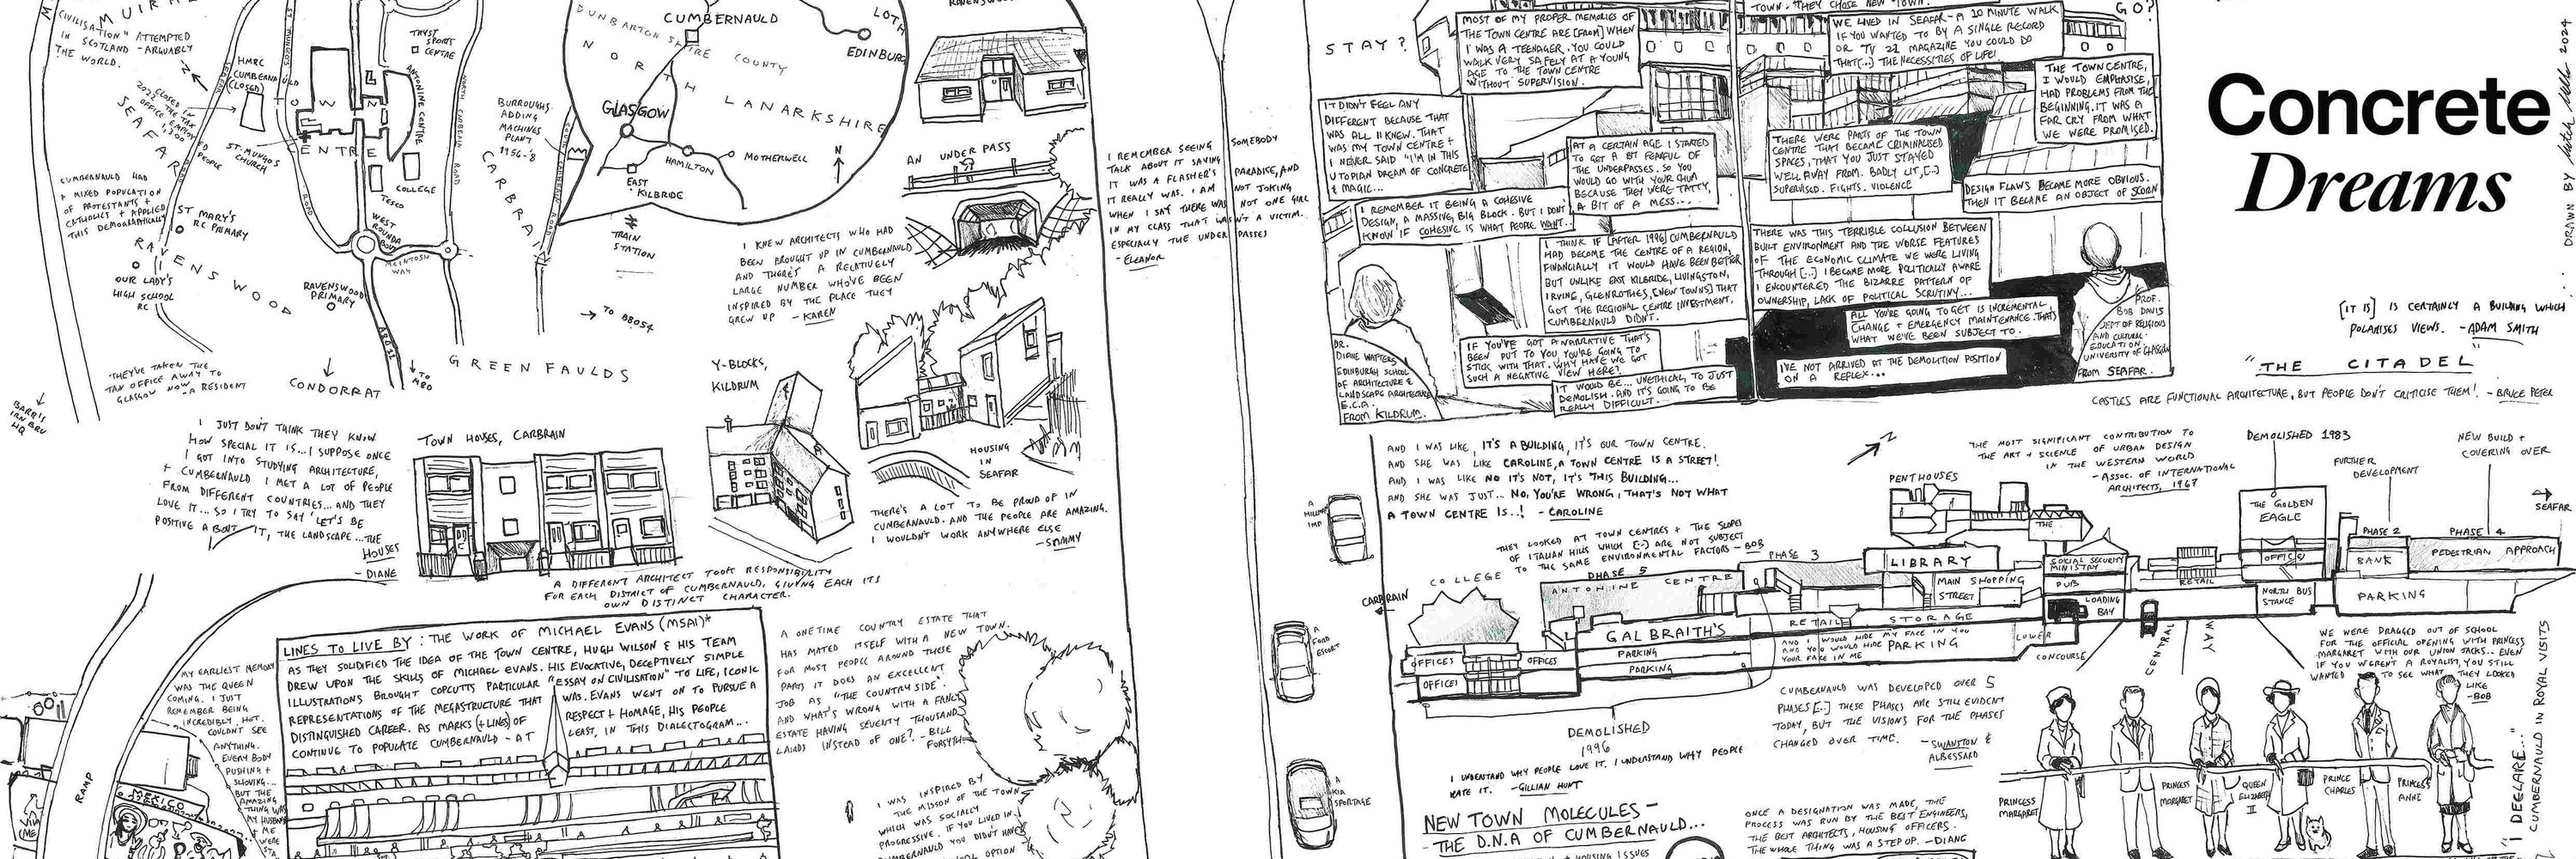 CIVILISATION" ATTEMPTED
IN SCOTLAND - ARGUABLY
THE WORLD.
HMRC
CUMBERNAULD
(CLOSED)
TRYST
SPORTS
CENTRE
ANTONINE CENTRE
ST. MUNGO'S
CHURCH
COLLEGE
TESCO
SEAFAR
CUMBERNAULD HAD
A MIXED POPULATION
OF PROTESTANTS +
CATHOLICS + APPLIED
THIS DEMOGRAPHICALLY
ST MARY'S
RC PRIMARY
RAVENSWOOD
OUR LADY'S
HIGH SCHOOL
RC
RAVENSWOOD
PRIMARY
CARBRAIN
BURROUGHS
ADDING
MACHINES
PLANT
1956-'8
TRAIN
STATION
→ TO B8054
GREENFAULDS
CONDORRAT
TO M80
"THEY'VE TAKEN THE
TAX OFFICE AWAY TO
GLASGOW NOW - A RESIDENT
BARR'S
IRN BRU
HQ
CUMBERNAULD
DUNBARTONSHIRE COUNTY
NORTH LANARKSHIRE
EDINBURG
GLASGOW
HAMILTON
MOTHERWELL
EAST
KILBRIDE
N
AN UNDERPASS
I KNEW ARCHITECTS WHO HAD
BEEN BROUGHT UP IN CUMBERNAULD
AND THERE'S A RELATIVELY
LARGE NUMBER WHO'VE BEEN
INSPIRED BY THE PLACE THEY
GREW UP - KAREN
I REMEMBER SEEING SOMEBODY
TALK ABOUT IT SAYING
IT WAS A FLASHER'S PARADISE, AND
IT REALLY WAS. I AM NOT JOKING
WHEN I SAY THERE WAS NOT ONE GIRL
IN MY CLASS THAT WASN'T A VICTIM.
ESPECIALLY THE UNDERPASSES
- ELEANOR
I JUST DON'T THINK THEY KNOW
HOW SPECIAL IT IS... I SUPPOSE ONCE
I GOT INTO STUDYING ARCHITECTURE,
+ CUMBERNAULD I MET A LOT OF PEOPLE
FROM DIFFERENT COUNTRIES... AND THEY
LOVE IT... SO I TRY TO SAY 'LET'S BE
POSITIVE ABOUT IT, THE LANDSCAPE... THE
HOUSES
- DIANE
TOWN HOUSES, CARBRAIN
Y-BLOCKS,
KILDRUM
HOUSING
IN
SEAFAR
THERE'S A LOT TO BE PROUD OF IN
CUMBERNAULD. AND THE PEOPLE ARE AMAZING.
I WOULDN'T WORK ANYWHERE ELSE
A DIFFERENT ARCHITECT TOOK RESPONSIBILITY
FOR EACH DISTRICT OF CUMBERNAULD, GIVING EACH ITS
OWN DISTINCT CHARACTER.
LINES TO LIVE BY: THE WORK OF MICHAEL EVANS (MSAI)*
AS THEY SOLIDIFIED THE IDEA OF THE TOWN CENTRE, HUGH WILSON & HIS TEAM
DREW UPON THE SKILLS OF MICHAEL EVANS. HIS EVOCATIVE, DECEPTIVELY SIMPLE
ILLUSTRATIONS BROUGHT COPCUTTS PARTICULAR "ESSAY ON CIVILISATION" TO LIFE, ICONIC
REPRESENTATIONS OF THE MEGASTRUCTURE THAT WAS. EVANS WENT ON TO PURSUE A
DISTINGUISHED CAREER. AS MARKS (+ LINES) OF RESPECT + HOMAGE, HIS PEOPLE
CONTINUE TO POPULATE CUMBERNAULD - AT LEAST, IN THIS DIALECTOGRAM...
A ONE TIME COUNTRY ESTATE THAT
HAS MATED ITSELF WITH A NEW TOWN.
FOR MOST PEOPLE AROUND THESE
PARTS IT DOES AN EXCELLENT
JOB AS "THE COUNTRYSIDE".
AND WHAT'S WRONG WITH A FANCY
ESTATE HAVING SEVENTY THOUSAND
LAIRDS INSTEAD OF ONE? - BILL
FORSYTH
I WAS INSPIRED BY
THE MISSION OF THE TOWN
WHICH WAS SOCIALLY
PROGRESSIVE. IF YOU LIVED IN
CUMBERNAULD YOU DIDN'T HAVE
MY EARLIEST MEMORY
WAS THE QUEEN
COMING. I JUST
REMEMBER BEING
INCREDIBLY HOT.
COULDN'T SEE
ANYTHING.
EVERYBODY
PUSHING +
SHOVING...
BUT THE
AMAZING
THING WAS
RAMP
MEXICO
STAY?
GO?
MOST OF MY PROPER MEMORIES OF
THE TOWN CENTRE ARE [FROM] WHEN
I WAS A TEENAGER. YOU COULD
WALK VERY SAFELY AT A YOUNG
AGE TO THE TOWN CENTRE
WITHOUT SUPERVISION.
WE LIVED IN SEAFAR - A 10 MINUTE WALK
IF YOU WANTED TO BY A SINGLE RECORD
OR TV 21 MAGAZINE YOU COULD DO
THAT [..] THE NECESSITIES OF LIFE!
THE TOWN CENTRE,
I WOULD EMPHASISE,
HAD PROBLEMS FROM THE
BEGINNING. IT WAS A
FAR CRY FROM WHAT
WE WERE PROMISED.
IT DIDN'T FEEL ANY
DIFFERENT BECAUSE THAT
WAS ALL I KNEW. THAT
WAS MY TOWN CENTRE +
I NEVER SAID "I'M IN THIS
UTOPIAN DREAM OF CONCRETE
& MAGIC...
AT A CERTAIN AGE I STARTED
TO GET A BIT FEARFUL OF
THE UNDERPASSES. SO YOU
WOULD GO WITH YOUR CHUM
BECAUSE THEY WERE TATTY,
A BIT OF A MESS...
THERE WERE PARTS OF THE TOWN
CENTRE THAT BECAME CRIMINALISED
SPACES, THAT YOU JUST STAYED
WELL AWAY FROM. BADLY LIT, [..]
SUPERVISED. FIGHTS. VIOLENCE
DESIGN FLAWS BECAME MORE OBVIOUS.
THEN IT BECAME AN OBJECT OF SCORN
I REMEMBER IT BEING A COHESIVE
DESIGN, A MASSIVE, BIG BLOCK. BUT I DON'T
KNOW IF COHESIVE IS WHAT PEOPLE WANT...
I THINK IF [AFTER 1996] CUMBERNAULD
HAD BECOME THE CENTRE OF A REGION,
FINANCIALLY IT WOULD HAVE BEEN BETTER
BUT UNLIKE EAST KILBRIDE, LIVINGSTON,
IRVINE, GLENROTHES, [NEW TOWNS] THAT
GOT THE REGIONAL CENTRE INVESTMENT,
CUMBERNAULD DIDN'T.
THERE WAS THIS TERRIBLE COLLUSION BETWEEN
BUILT ENVIRONMENT AND THE WORSE FEATURES
OF THE ECONOMIC CLIMATE WE WERE LIVING
THROUGH [..] I BECOME MORE POLITICALLY AWARE
I ENCOUNTERED THE BIZARRE PATTERN OF
OWNERSHIP, LACK OF POLITICAL SCRUTINY...
ALL YOU'RE GOING TO GET IS INCREMENTAL
CHANGE + EMERGENCY MAINTENANCE. THAT'S
WHAT WE'VE BEEN SUBJECT TO.
I'VE NOT ARRIVED AT THE DEMOLITION POSITION
ON A REFLEX...
IF YOU'VE GOT A NARRATIVE THAT'S
BEEN PUT TO YOU YOU'RE GOING TO
STICK WITH THAT. WHY HAVE WE GOT
SUCH A NEGATIVE VIEW HERE?
IT WOULD BE... UNETHICAL TO JUST
DEMOLISH. AND IT'S GOING TO BE
REALLY DIFFICULT.
DR.
DIANE WATTERS
EDINBURGH SCHOOL
OF ARCHITECTURE &
LANDSCAPE ARCHITECTURE
E.C.A.
FROM KILDRUM.
PROF.
BOB DAVIS
DEPT OF RELIGIOUS
AND CULTURAL
EDUCATION
UNIVERSITY OF GLASGOW
FROM SEAFAR.
Concrete
Dreams
DRAWN BY
2024
[IT IS] IS CERTAINLY A BUILDING WHICH
POLARISES VIEWS. - ADAM SMITH
"THE CITADEL"
CASTLES ARE FUNCTIONAL ARCHITECTURE, BUT PEOPLE DON'T CRITICISE THEM! - BRUCE PETER
AND I WAS LIKE, IT'S A BUILDING, IT'S OUR TOWN CENTRE.
AND SHE WAS LIKE CAROLINE, A TOWN CENTRE IS A STREET!
AND I WAS LIKE NO IT'S NOT, IT'S THIS BUILDING...
AND SHE WAS JUST... NO, YOU'RE WRONG, THAT'S NOT WHAT
A TOWN CENTRE IS..! - CAROLINE
THEY LOOKED AT TOWN CENTRES + THE SLOPES
OF ITALIAN HILLS WHICH [..] ARE NOT SUBJECT
TO THE SAME ENVIRONMENTAL FACTORS - BOB
THE MOST SIGNIFICANT CONTRIBUTION TO
THE ART + SCIENCE OF URBAN DESIGN
IN THE WESTERN WORLD
- ASSOC. OF INTERNATIONAL
ARCHITECTS, 1967
DEMOLISHED 1983
FURTHER
DEVELOPMENT
NEW BUILD +
COVERING OVER
SEAFAR
PENTHOUSES
THE GOLDEN
EAGLE
OFFICES
PHASE 2
PHASE 4
BANK
PEDESTRIAN APPROACH
PARKING
NORTH BUS
STANCE
RETAIL
SOCIAL SECURITY
MINISTRY
PUB
LOADING
BAY
LIBRARY
MAIN SHOPPING
STREET
PHASE 3
PHASE 5
ANTONINE CENTRE
COLLEGE
CARBRAIN
GALBRAITH'S
RETAIL STORAGE
PARKING
PARKING
PARKING
OFFICES
OFFICES
OFFICES
AND I WOULD HIDE MY FACE IN YOU
AND YOU WOULD HIDE
YOUR FACE IN ME
LOWER
CONCOURSE
CENTRAL
WAY
A HILLMAN
IMP
A
FORD
ESCORT
A
KIA
SPORTAGE
DEMOLISHED
1996
I UNDERSTAND WHY PEOPLE LOVE IT. I UNDERSTAND WHY PEOPLE
HATE IT. - GILLIAN HUNT
CUMBERNAULD WAS DEVELOPED OVER 5
PHASES [..] THESE PHASES ARE STILL EVIDENT
TODAY, BUT THE VISIONS FOR THE PHASES
CHANGED OVER TIME. - SWANSTON &
ALBESSARD
WE WERE DRAGGED OUT OF SCHOOL
FOR THE OFFICIAL OPENING WITH PRINCESS
MARGARET WITH OUR UNION JACKS.. EVEN
IF YOU WEREN'T A ROYALIST, YOU STILL
WANTED TO SEE WHAT THEY LOOKED
LIKE
- BOB
PRINCESS
MARGARET
PRINCESS
MARGARET
QUEEN
ELIZABETH
II
PRINCE
CHARLES
PRINCESS
ANNE
"I DECLARE..."
CUMBERNAULD IN ROYAL VISITS
NEW TOWN MOLECULES -
- THE D.N.A OF CUMBERNAULD...
ONCE A DESIGNATION WAS MADE, THE
PROCESS WAS RUN BY THE BEST ENGINEERS,
THE BEST ARCHITECTS, HOUSING OFFICERS.
THE WHOLE THING WAS A STEP UP. - DIANE